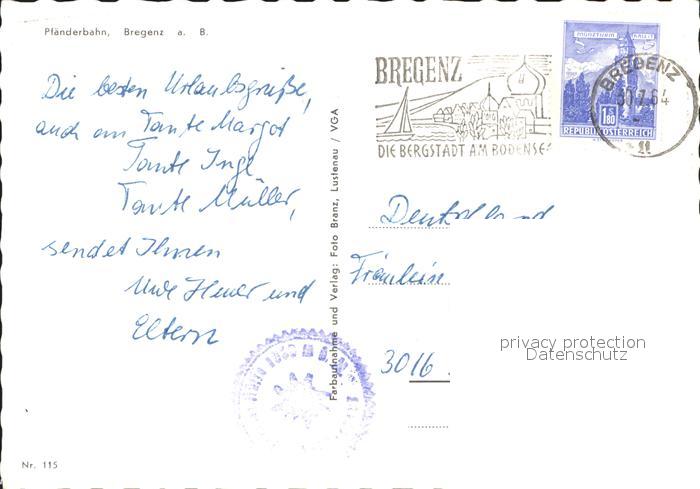 Pfänderbahn, Bregenz a. B.
Die besten Urlaubsgrüße,
auch an Tante Margot
Tante Inge
Tante Müller,
sendet Ihnen
Uwe und
Eltern
Nr. 115
Farbaufnahme und Verlag: Foto Branz, Lustenau / VGA
BREGENZ
DIE BERGSTADT AM BODENSEE
MÜNZTURM HALL I. T.
S 1.80
REPUBLIK ÖSTERREICH
BREGENZ
30.7.64
Deutschland
Fräulein
3016
privacy protection
Datenschutz